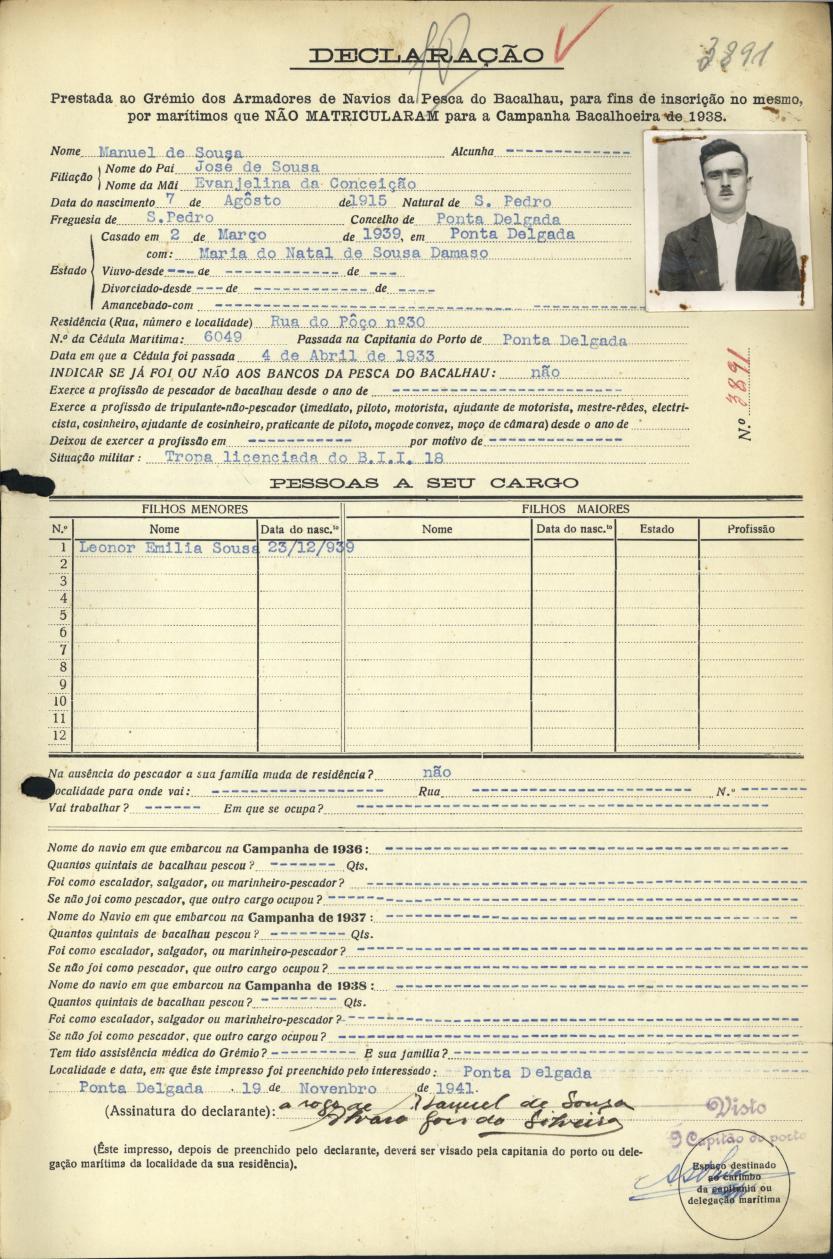 DECLARAÇÃO
3891
Prestada ao Grémio dos Armadores de Navios da Pesca do Bacalhau, para fins de inscrição no mesmo,
por marítimos que NÃO MATRICULARAM para a Campanha Bacalhoeira de 1938.
Nome Manuel de Sousa Alcunha
Filiação Nome do Pai José de Sousa
Nome da Mãi Evanjelina da Conceição
Data do nascimento 7 de Agôsto de 1915 Natural de S. Pedro
Freguesia de S.Pedro Concelho de Ponta Delgada
Estado Casado em 2 de Março de 1939, em Ponta Delgada
com: Maria do Natal de Sousa Damaso
Viuvo-desde de de
Divorciado-desde de de
Amancebado-com
Residência (Rua, número e localidade) Rua do Pôço nº30
N.º da Cédula Marítima: 6049 Passada na Capitania do Porto de Ponta Delgada
Data em que a Cédula foi passada 4 de Abril de 1933
INDICAR SE JÁ FOI OU NÃO AOS BANCOS DA PESCA DO BACALHAU: não
Exerce a profissão de pescador de bacalhau desde o ano de
Exerce a profissão de tripulante-não-pescador (imediato, piloto, motorista, ajudante de motorista, mestre-rêdes, electri-
cista, cosinheiro, ajudante de cosinheiro, praticante de piloto, moço de convez, moço de câmara) desde o ano de
Deixou de exercer a profissão em por motivo de
Situação militar: Tropa licenciada do B.I.I. 18
N.º 3891
PESSOAS A SEU CARGO
FILHOS MENORES FILHOS MAIORES
N.º Nome Data do nasc.to Nome Data do nasc.to Estado Profissão
1 Leonor Emilia Sousa 23/12/939
2
3
4
5
6
7
8
9
10
11
12
Na ausência do pescador a sua família muda de residência? não
ocalidade para onde vai: Rua N.º
Vai trabalhar? Em que se ocupa?
Nome do navio em que embarcou na Campanha de 1936:
Quantos quintais de bacalhau pescou? Qts.
Foi como escalador, salgador, ou marinheiro-pescador?
Se não foi como pescador, que outro cargo ocupou?
Nome do Navio em que embarcou na Campanha de 1937:
Quantos quintais de bacalhau pescou? Qts.
Foi como escalador, salgador, ou marinheiro-pescador?
Se não foi como pescador, que outro cargo ocupou?
Nome do navio em que embarcou na Campanha de 1938:
Quantos quintais de bacalhau pescou? Qts.
Foi como escalador, salgador ou marinheiro-pescador?
Se não foi como pescador, que outro cargo ocupou?
Tem tido assistência médica do Grémio? E sua família?
Localidade e data, em que êste impresso foi preenchido pelo interessado: Ponta Delgada
Ponta Delgada . 19 de Novenbro de 1941.
(Assinatura do declarante): a rogo de Manuel de Sousa
Alvaro Gois da Silveira
Visto
O Capitão do porto
(Êste impresso, depois de preenchido pelo declarante, deverá ser visado pela capitania do porto ou dele-
gação marítima da localidade da sua residência).
Espaço destinado
ao carimbo
da capitania ou
delegação marítima